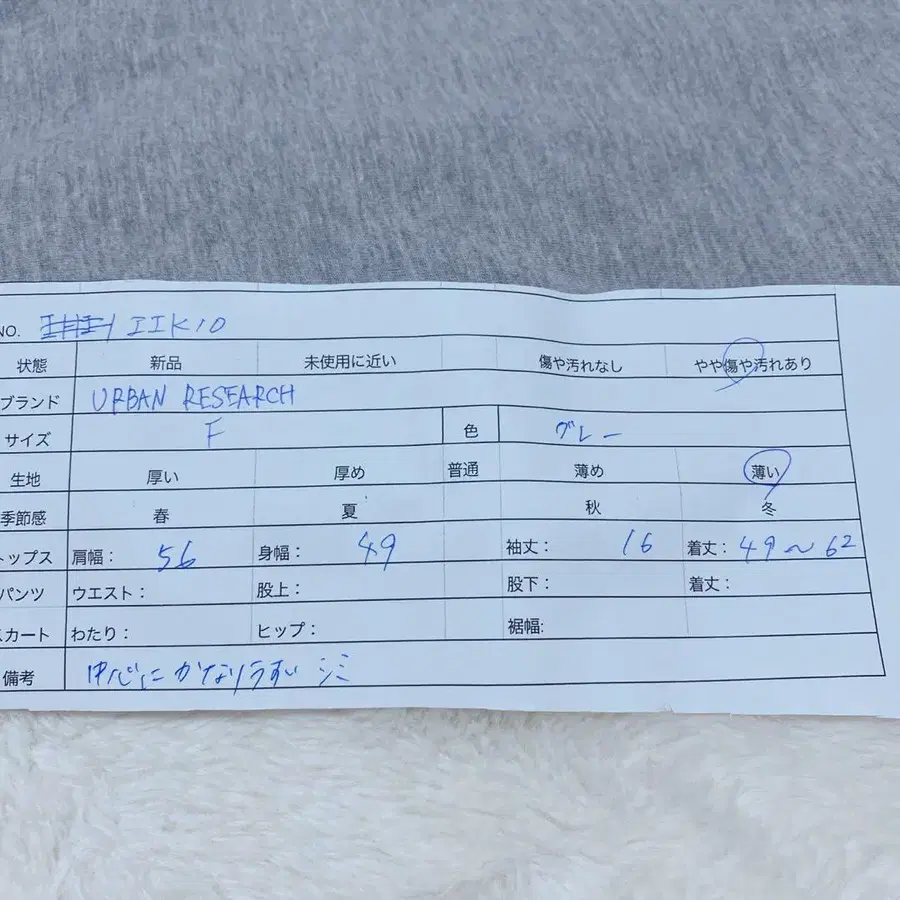 NO. IIK10
状態 新品 未使用に近い 傷や汚れなし やや傷や汚れあり
ブランド URBAN RESEARCH
サイズ F 色 グレー
生地 厚い 厚め 普通 薄め 薄い
季節感 春 夏 秋 冬
トップス 肩幅: 56 身幅: 49 袖丈: 16 着丈: 49～62
パンツ ウエスト: 股上: 股下: 着丈:
スカート わたり: ヒップ: 裾幅:
備考 中心にかなりうすいシミ